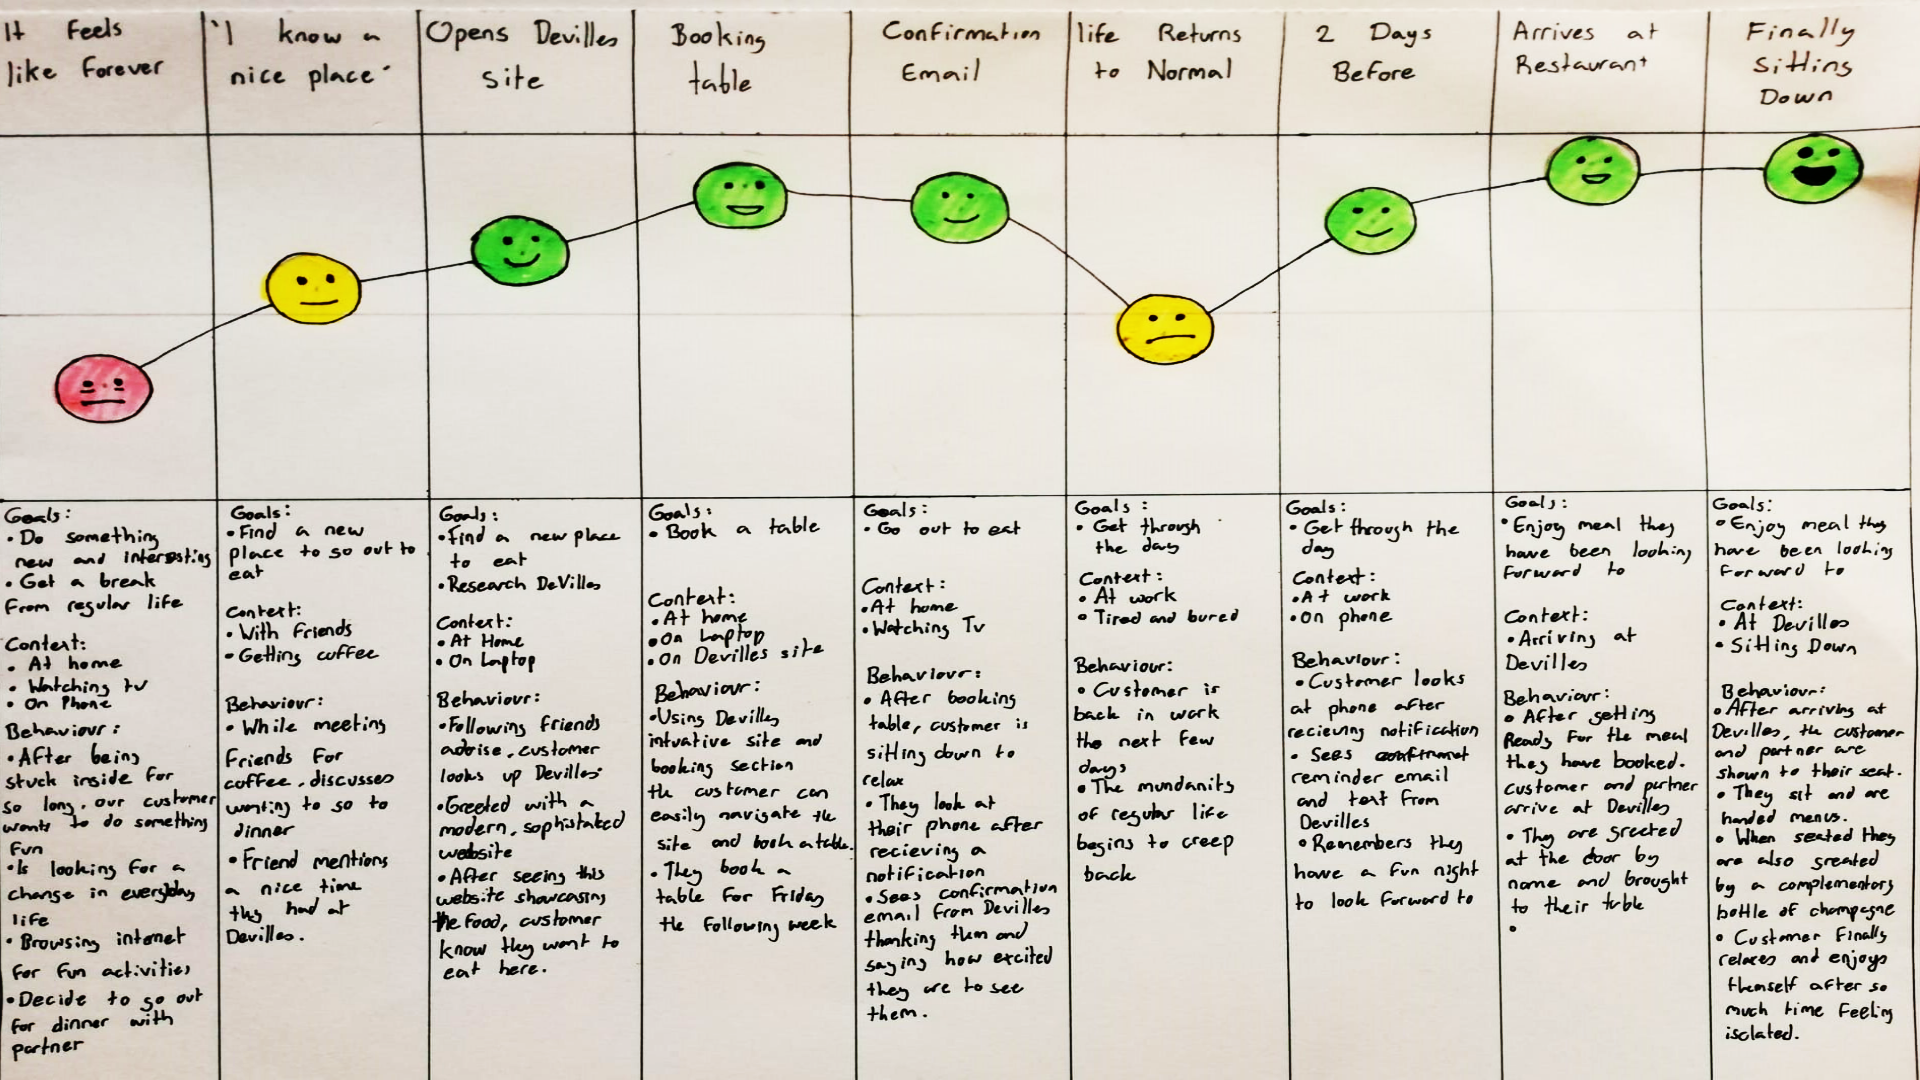 It Feels
like Forever
'I know a
nice place'
Opens Devilles
Site
Booking
table
Confirmation
Email
life Returns
to Normal
2 Days
Before
Arrives at
Restaurant
Finally
Sitting
Down
Goals:
• Do something
new and interesting
• Get a break
From regular life
Context:
• At home
• Watching tv
• On Phone
Behaviour:
• After being
stuck inside for
so long, our customer
wants to do something
fun
• Is looking for a
change in everyday
life
• Browsing internet
for fun activities
• Decide to go out
for dinner with
partner
Goals:
• Find a new
place to go out to
eat
Context:
• With friends
• Getting coffee
Behaviour:
• While meeting
Friends For
coffee, discusses
wanting to go to
dinner
• Friend mentions
a nice time
they had at
Devilles.
Goals:
• find a new place
to eat
• Research DeVilles
Context:
• At Home
• On Laptop
Behaviour:
• Following friends
advise, customer
looks up Devilles
• Greeted with a
modern, sophistated
website
• After seeing this
website showcasing
the food, customer
know they want to
eat here.
Goals:
• Book a table
Context:
• At home
• On Laptop
• On Devilles site
Behaviour:
• Using Devilles
intuative site and
booking section
the customer can
easily navigate the
site and book a table.
• They book a
table for Friday
the following week
Goals:
• Go out to eat
Context:
• At home
• Watching Tv
Behaviour:
• After booking
table, customer is
sitting down to
relax
• They look at
their phone after
recieving a
notification
• Sees confirmation
email from Devilles
thanking them and
saying how excited
they are to see
them.
Goals:
• Get through
the day
Context:
• At work
• Tired and bored
Behaviour:
• Customer is
back in work
the next few
days
• The mundanity
of regular life
begins to creep
back
Goals:
• Get through the
day
Context:
• At work
• On phone
Behaviour:
• Customer looks
at phone after
recieving notification
• Sees
reminder email
and text from
Devilles
• Remembers they
have a fun night
to look forward to
Goals:
• Enjoy meal they
have been looking
forward to
Context:
• Arriving at
Devilles
Behaviour:
• After getting
Ready for the meal
they have booked.
customer and partner
arrive at Devilles
• They are greeted
at the door by
name and brought
to their table
•
Goals:
• Enjoy meal they
have been looking
forward to
Context:
• At Devilles
• Sitting Down
Behaviour:
• After arriving at
Devilles, the customer
and partner are
shown to their seat.
• They sit and are
handed menus.
• When seated they
are also greated
by a complementory
bottle of champagne
• Customer Finally
relaxes and enjoys
themself after so
much time feeling
isolated.